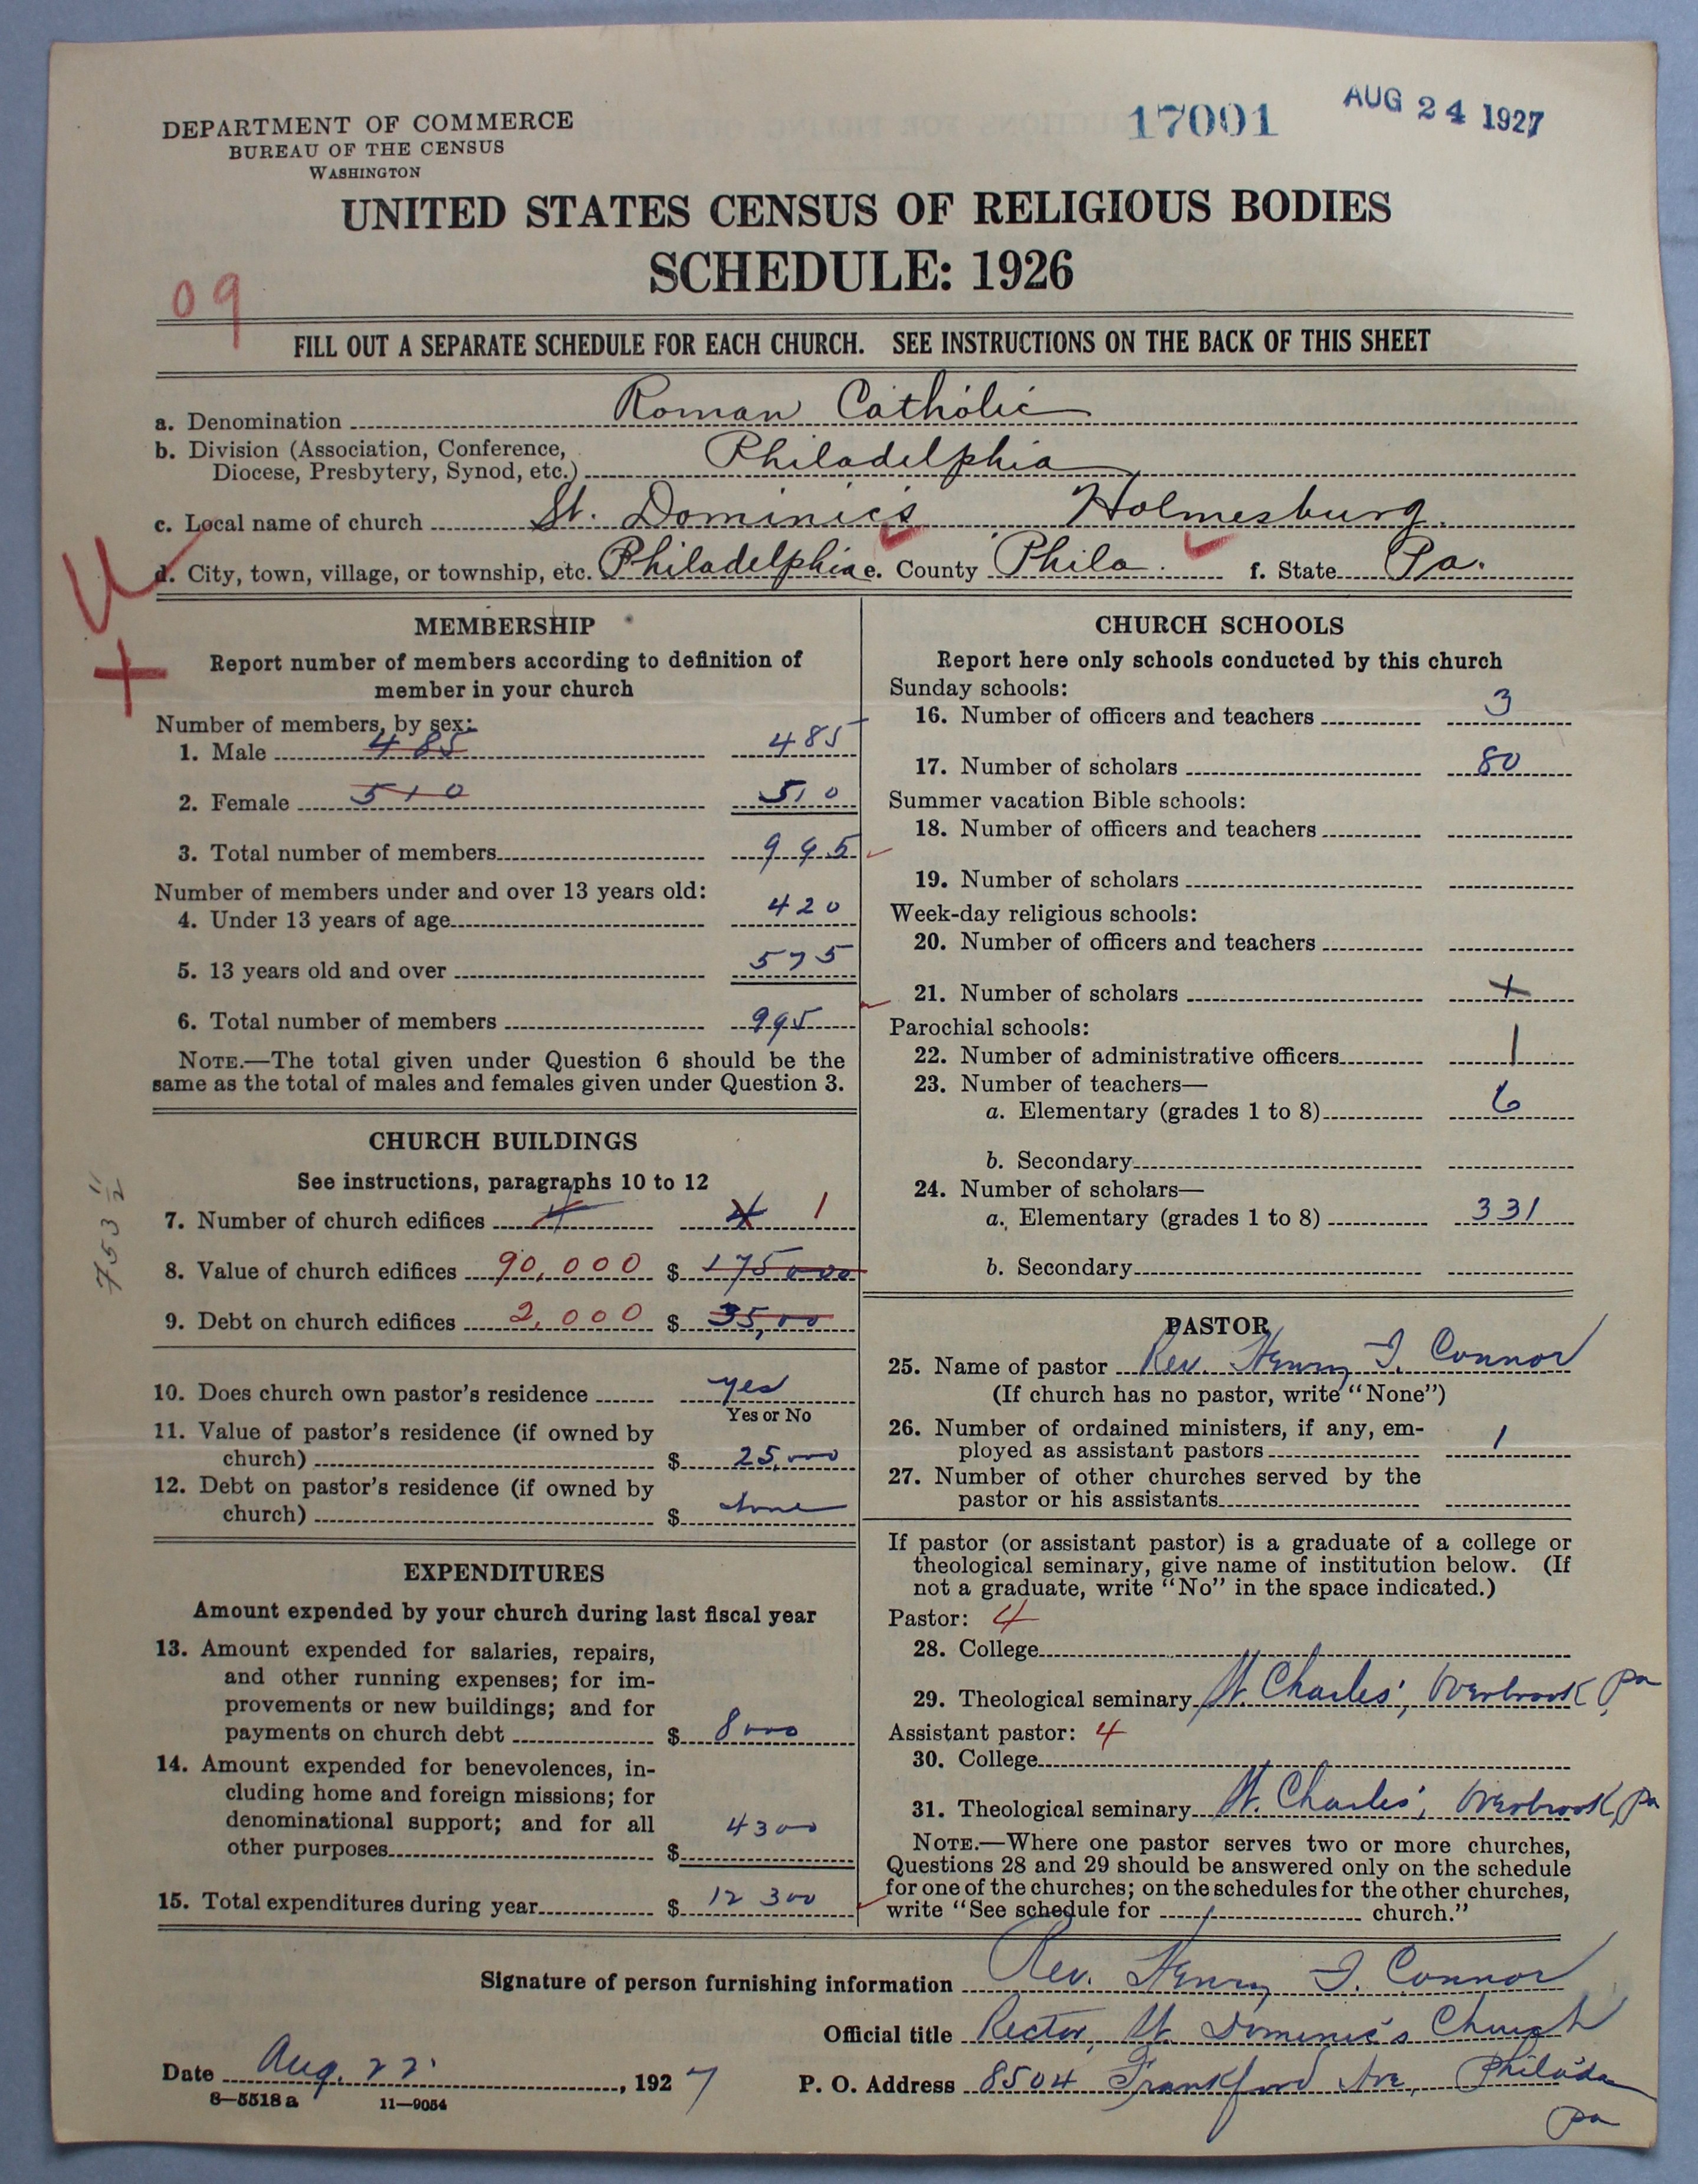 17001
AUG 24 1927
DEPARTMENT OF COMMERCE
BUREAU OF THE CENSUS
WASHINGTON
UNITED STATES CENSUS OF RELIGIOUS BODIES
SCHEDULE: 1926
09
FILL OUT A SEPARATE SCHEDULE FOR EACH CHURCH. SEE INSTRUCTIONS ON THE BACK OF THIS SHEET
a. Denomination Roman Catholic
b. Division (Association, Conference,
Diocese, Presbytery, Synod, etc.) Philadelphia
c. Local name of church St. Dominic's Holmesburg
d. City, town, village, or township, etc. Philadelphia e. County Phila. f. State Pa.
MEMBERSHIP
Report number of members according to definition of
member in your church
Number of members, by sex:
1. Male 485 485
2. Female 510 510
3. Total number of members 995
Number of members under and over 13 years old:
4. Under 13 years of age 420
5. 13 years old and over 575
6. Total number of members 995
NOTE.—The total given under Question 6 should be the
same as the total of males and females given under Question 3.
CHURCH BUILDINGS
See instructions, paragraphs 10 to 12
7. Number of church edifices 4 4 1
8. Value of church edifices 90,000 $ 175000
9. Debt on church edifices 2,000 $ 35,00
10. Does church own pastor's residence yes
Yes or No
11. Value of pastor's residence (if owned by
church) $ 25,000
12. Debt on pastor's residence (if owned by
church) $ none
EXPENDITURES
Amount expended by your church during last fiscal year
13. Amount expended for salaries, repairs,
and other running expenses; for im-
provements or new buildings; and for
payments on church debt $ 8000
14. Amount expended for benevolences, in-
cluding home and foreign missions; for
denominational support; and for all
other purposes $ 4300
15. Total expenditures during year $ 12300
CHURCH SCHOOLS
Report here only schools conducted by this church
Sunday schools:
16. Number of officers and teachers 3
17. Number of scholars 80
Summer vacation Bible schools:
18. Number of officers and teachers
19. Number of scholars
Week-day religious schools:
20. Number of officers and teachers
21. Number of scholars +
Parochial schools:
22. Number of administrative officers 1
23. Number of teachers—
a. Elementary (grades 1 to 8) 6
b. Secondary
24. Number of scholars—
a. Elementary (grades 1 to 8) 331
b. Secondary
PASTOR
25. Name of pastor Rev. Henry I. Connor
(If church has no pastor, write "None")
26. Number of ordained ministers, if any, em-
ployed as assistant pastors 1
27. Number of other churches served by the
pastor or his assistants
If pastor (or assistant pastor) is a graduate of a college or
theological seminary, give name of institution below. (If
not a graduate, write "No" in the space indicated.)
Pastor: 4
28. College
29. Theological seminary St. Charles', Overbrook, Pa
Assistant pastor: 4
30. College
31. Theological seminary St. Charles', Overbrook, Pa
NOTE.—Where one pastor serves two or more churches,
Questions 28 and 29 should be answered only on the schedule
for one of the churches; on the schedules for the other churches,
write "See schedule for church."
Signature of person furnishing information Rev. Henry I. Connor
Official title Rector, St. Dominic's Church
Date Aug. 22, 1927
P. O. Address 8504 Frankford Ave, Philada
Pa
8—5518 a 11—9054